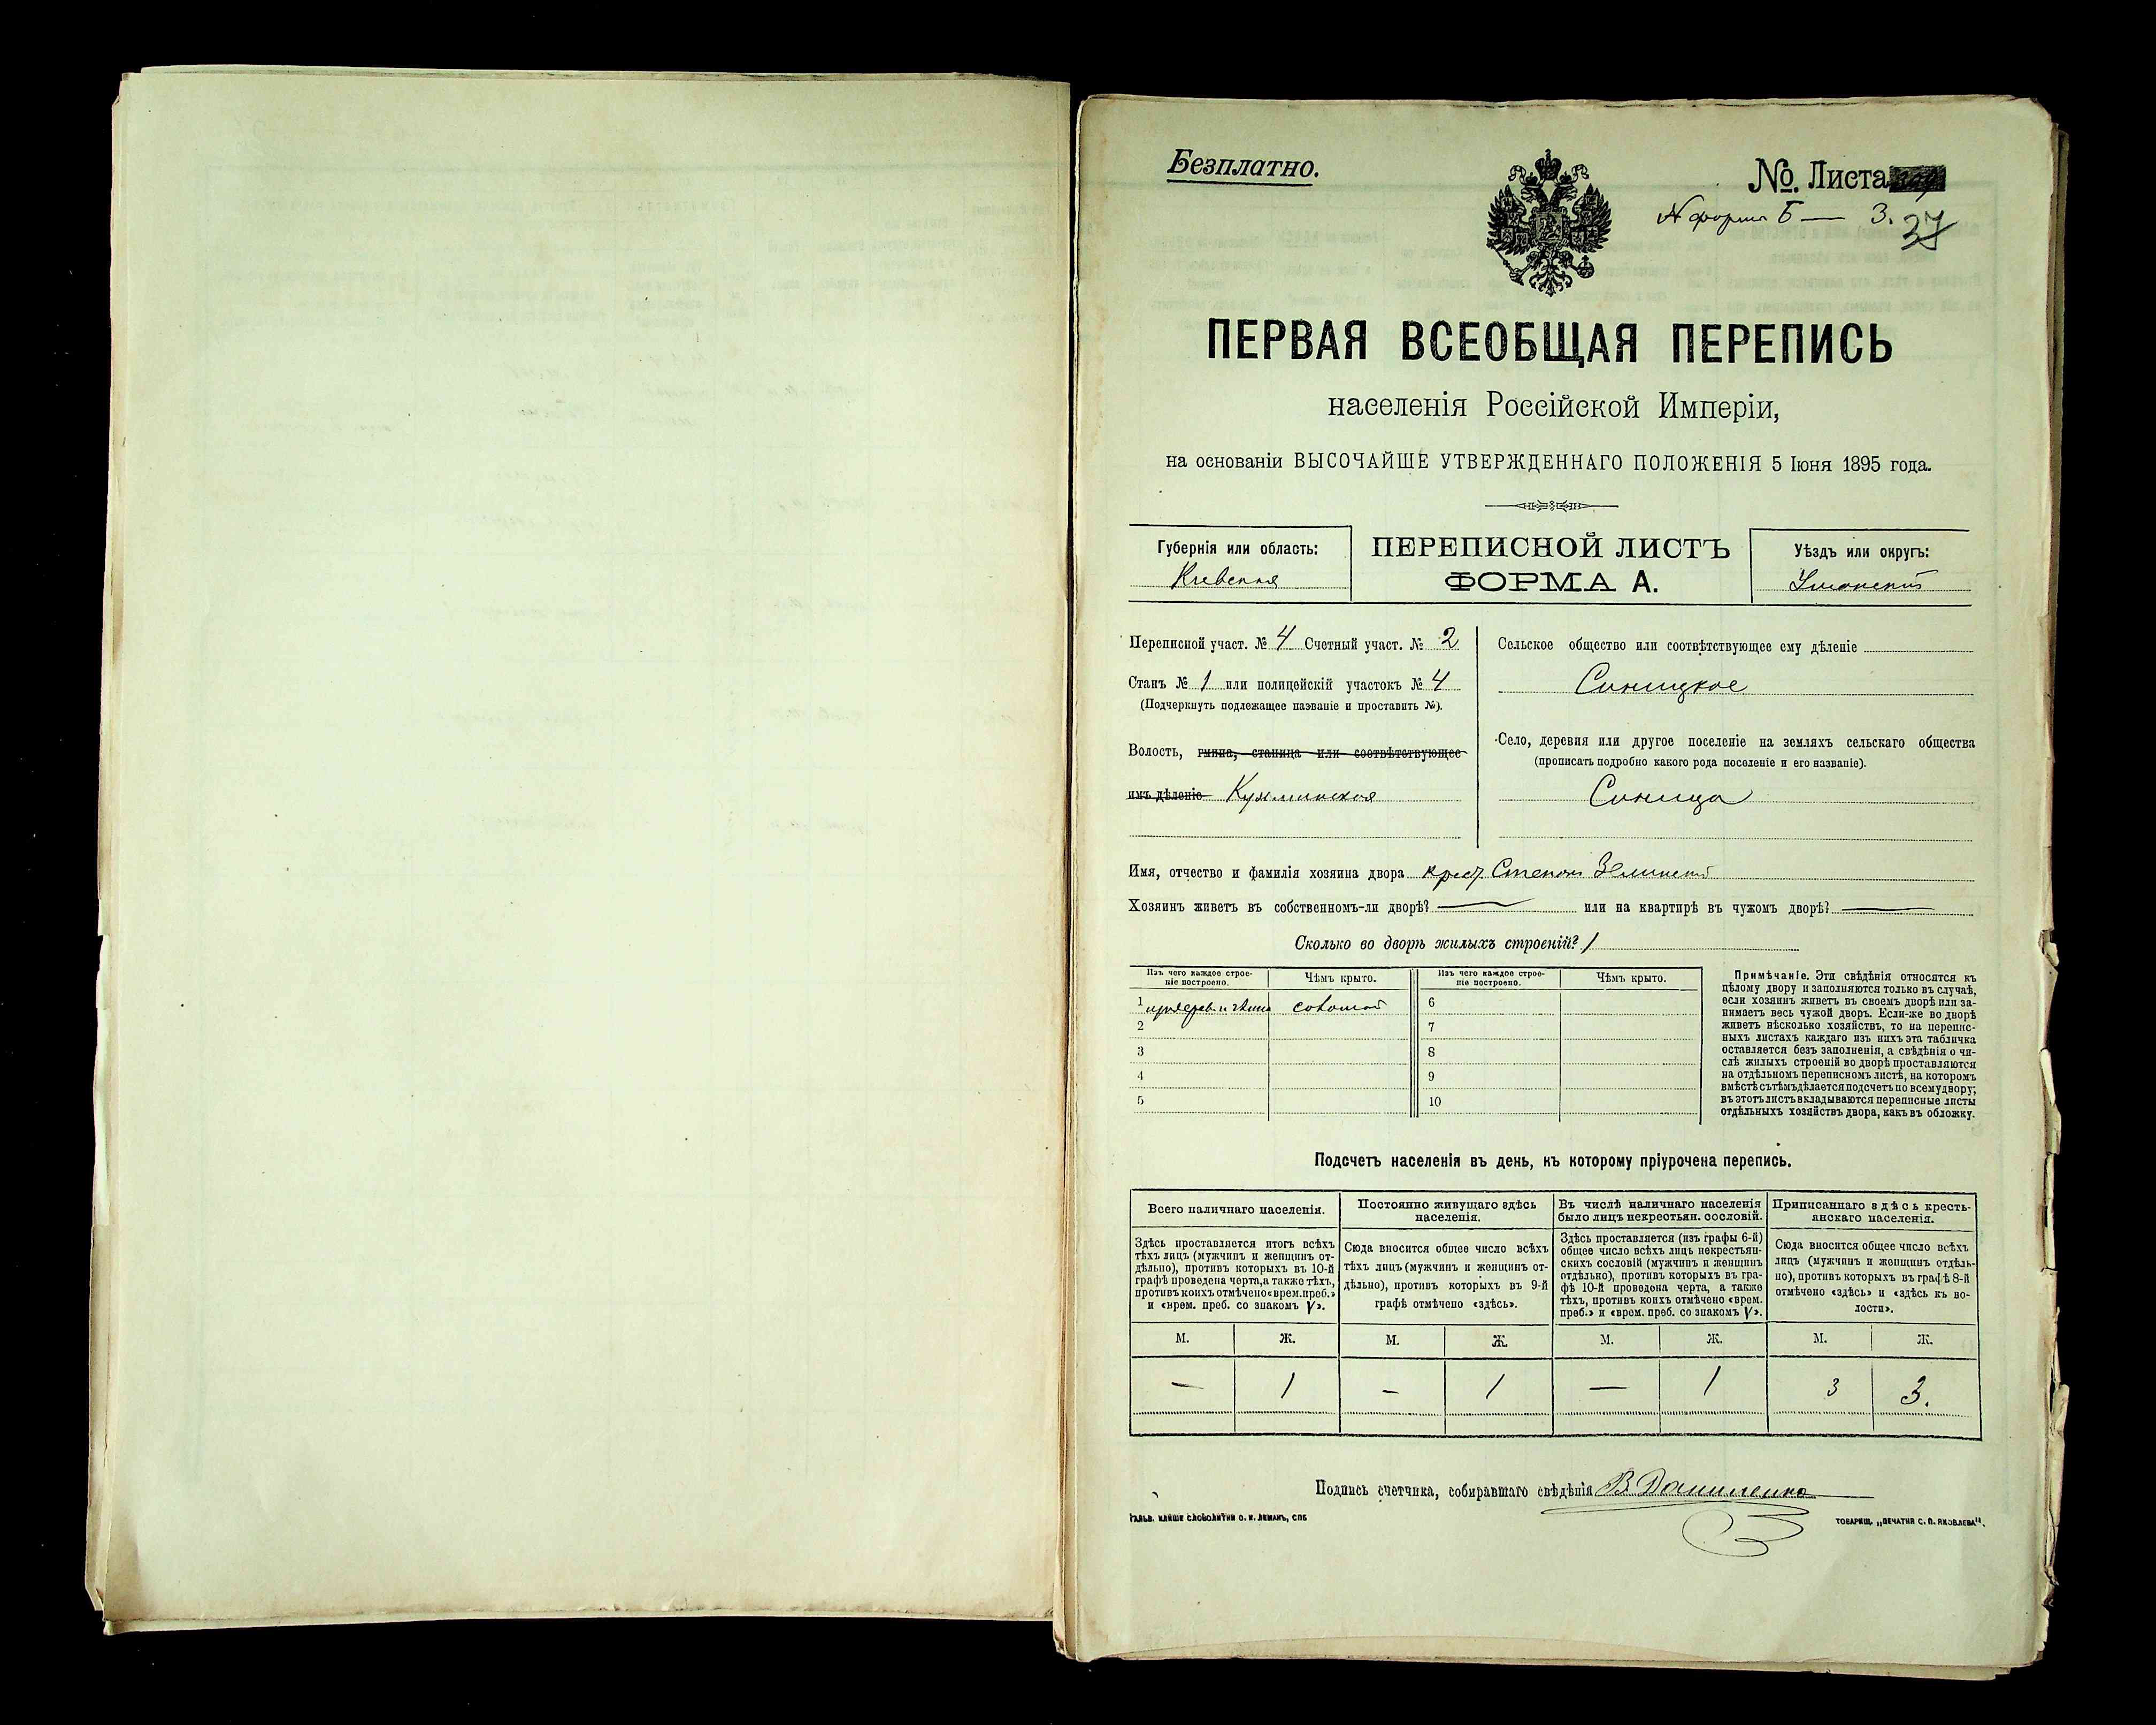 Безплатно.
№. Листа
N форма Б — 3.
37
ПЕРВАЯ ВСЕОБЩАЯ ПЕРЕПИСЬ
населенія Россійской Имперіи,
на основаніи ВЫСОЧАЙШЕ УТВЕРЖДЕННАГО ПОЛОЖЕНІЯ 5 Іюня 1895 года.
Губернія или область:
Кіевская
ПЕРЕПИСНОЙ ЛИСТЪ
ФОРМА А.
Уѣздъ или округъ:
Уманскій
Переписной участ. № 4 Счетный участ. № 2
Станъ № 1 или полицейскій участокъ № 4
(Подчеркнуть подлежащее названіе и проставить №).
Волость, гмина, станица или соотвѣтствующее
имъ дѣленіе Кузьминская
Сельское общество или соотвѣтствующее ему дѣленіе
Синицкое
Село, деревня или другое поселеніе на земляхъ сельскаго общества
(прописать подробно какого рода поселеніе и его названіе).
Синица
Имя, отчество и фамилія хозяина двора крест. Степанъ
Хозяинъ живетъ въ собственномъ-ли дворѣ? — или на квартирѣ въ чужомъ дворѣ? —
Сколько во дворѣ жилыхъ строеній? 1
Изъ чего каждое строе-
ніе построено.
Чѣмъ крыто.
Изъ чего каждое строе-
ніе построено.
Чѣмъ крыто.
1 и глины соломой 6
2 7
3 8
4 9
5 10
Примѣчаніе. Эти свѣдѣнія относятся къ
цѣлому двору и заполняются только въ случаѣ,
если хозяинъ живетъ въ своемъ дворѣ или за-
нимаетъ весь чужой дворъ. Если-же во дворѣ
живетъ нѣсколько хозяйствъ, то на перепис-
ныхъ листахъ каждаго изъ нихъ эта табличка
оставляется безъ заполненія, а свѣдѣнія о чи-
слѣ жилыхъ строеній во дворѣ проставляются
на отдѣльномъ переписномъ листѣ, на которомъ
вмѣстѣ съ тѣмъ дѣлается подсчетъ по всему двору;
въ этотъ листъ вкладываются переписные листы
отдѣльныхъ хозяйствъ двора, какъ въ обложку.
Подсчетъ населенія въ день, къ которому пріурочена перепись.
Всего наличнаго населенія.
Здѣсь проставляется итогъ всѣхъ
тѣхъ лицъ (мужчинъ и женщинъ от-
дѣльно), противъ которыхъ въ 10-й
графѣ проведена черта, а также тѣхъ,
противъ коихъ отмѣчено «врем. преб.»
и «врем. преб. со знакомъ V».
Постоянно живущаго здѣсь
населенія.
Сюда вносится общее число всѣхъ
тѣхъ лицъ (мужчинъ и женщинъ от-
дѣльно), противъ которыхъ въ 9-й
графѣ отмѣчено «здѣсь».
Въ числѣ наличнаго населенія
было лицъ некрестьян. сословій.
Здѣсь проставляется (изъ графы 6-й)
общее число всѣхъ лицъ некрестьян-
скихъ сословій (мужчинъ и женщинъ
отдѣльно), противъ которыхъ въ гра-
фѣ 10-й проведена черта, а также
тѣхъ, противъ коихъ отмѣчено «врем.
преб.» и «врем. преб. со знакомъ V».
Приписаннаго здѣсь кресть-
янскаго населенія.
Сюда вносится общее число всѣхъ
лицъ (мужчинъ и женщинъ отдѣль-
но), противъ которыхъ въ графѣ 8-й
отмѣчено «здѣсь» и «здѣсь къ во-
лости».
М. Ж. М. Ж. М. Ж. М. Ж.
— 1 — 1 — 1 3 3.
Подпись счетчика, собиравшаго свѣдѣнія В Даниленко
ГАЛЬВ. КЛИШЕ СЛОВОЛИТНИ О. И. ЛЕМАНЪ, СПБ
ТОВАРИЩ. „ПЕЧАТНЯ С. П. ЯКОВЛЕВА".